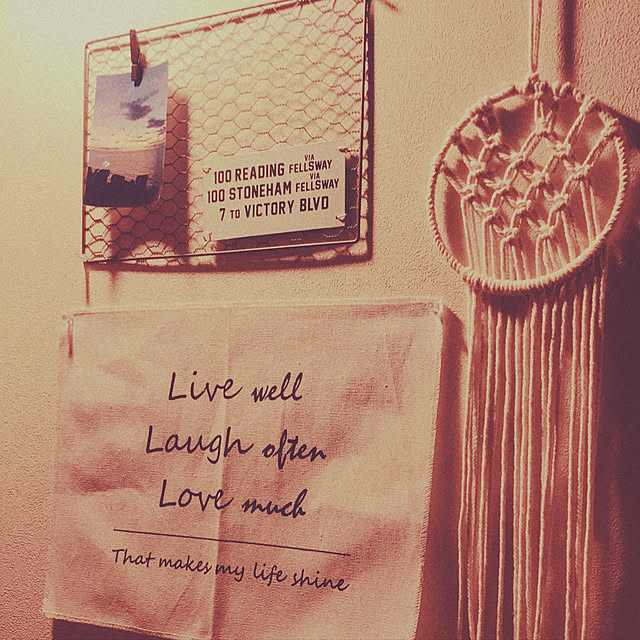 100 READING VIA FELLSWAY
100 STONEHAM VIA FELLSWAY
7 TO VICTORY BLVD
Live well
Laugh often
Love much
That makes my life shine